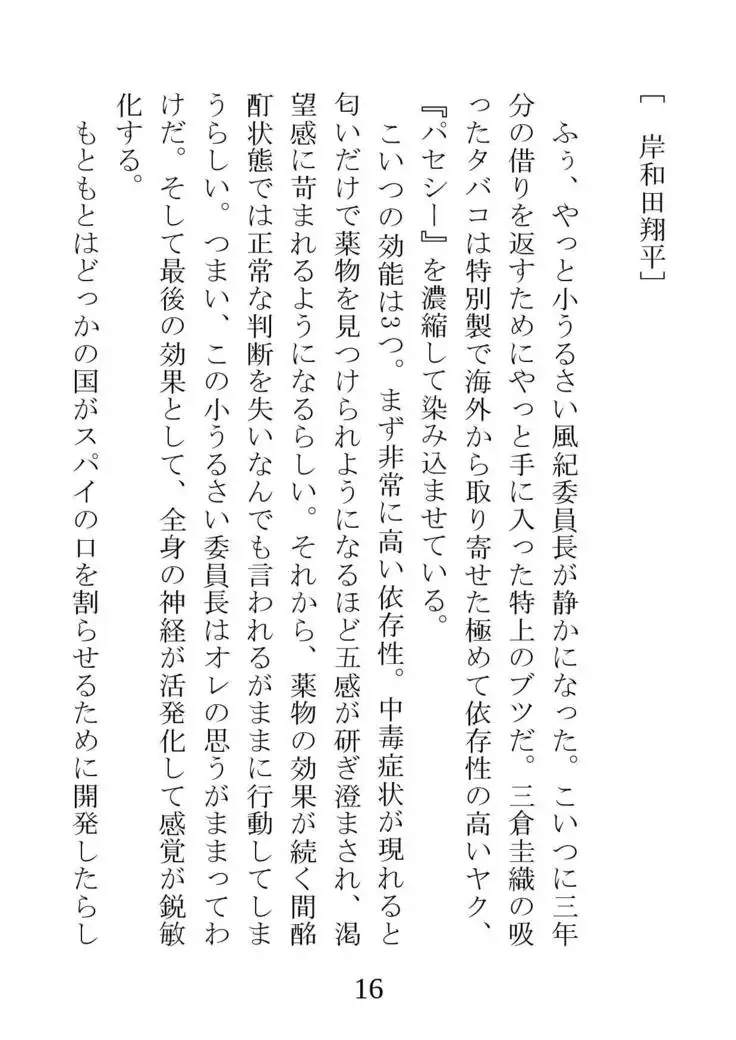 [　岸和田翔平]
　ふぅ、やっと小うるさい風紀委員長が静かになった。こいつに三年
分の借りを返すためにやっと手に入った特上のブツだ。三倉圭織の吸
ったタバコは特別製で海外から取り寄せた極めて依存性の高いヤク、
『パセシー』を濃縮して染み込ませている。
　こいつの効能は3つ。まず非常に高い依存性。中毒症状が現れると
匂いだけで薬物を見つけられようになるほど五感が研ぎ澄まされ、渇
望感に苛まれるようになるらしい。それから、薬物の効果が続く間酩
酊状態では正常な判断を失いなんでも言われるがままに行動してしま
うらしい。つまい、この小うるさい委員長はオレの思うがままってわ
けだ。そして最後の効果として、全身の神経が活発化して感覚が鋭敏
化する。
　もともとはどっかの国がスパイの口を割らせるために開発したらし
16